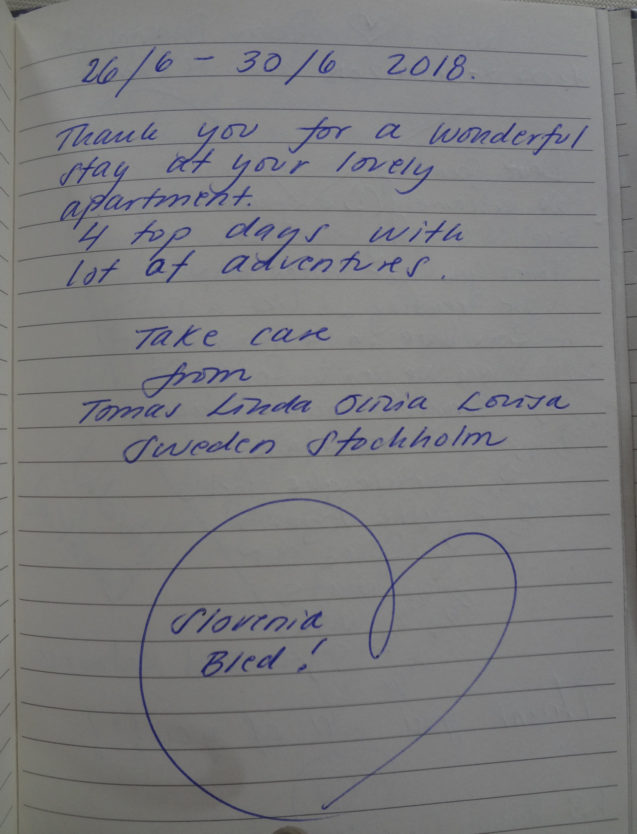 26/6 - 30/6 2018.
Thank you for a wonderful
stay at your lovely
apartment.
4 top days with
lot at adventures.
Take care
from
Tomas Linda Olivia Lovisa
Sweden Stockholm
Slovenia
Bled!